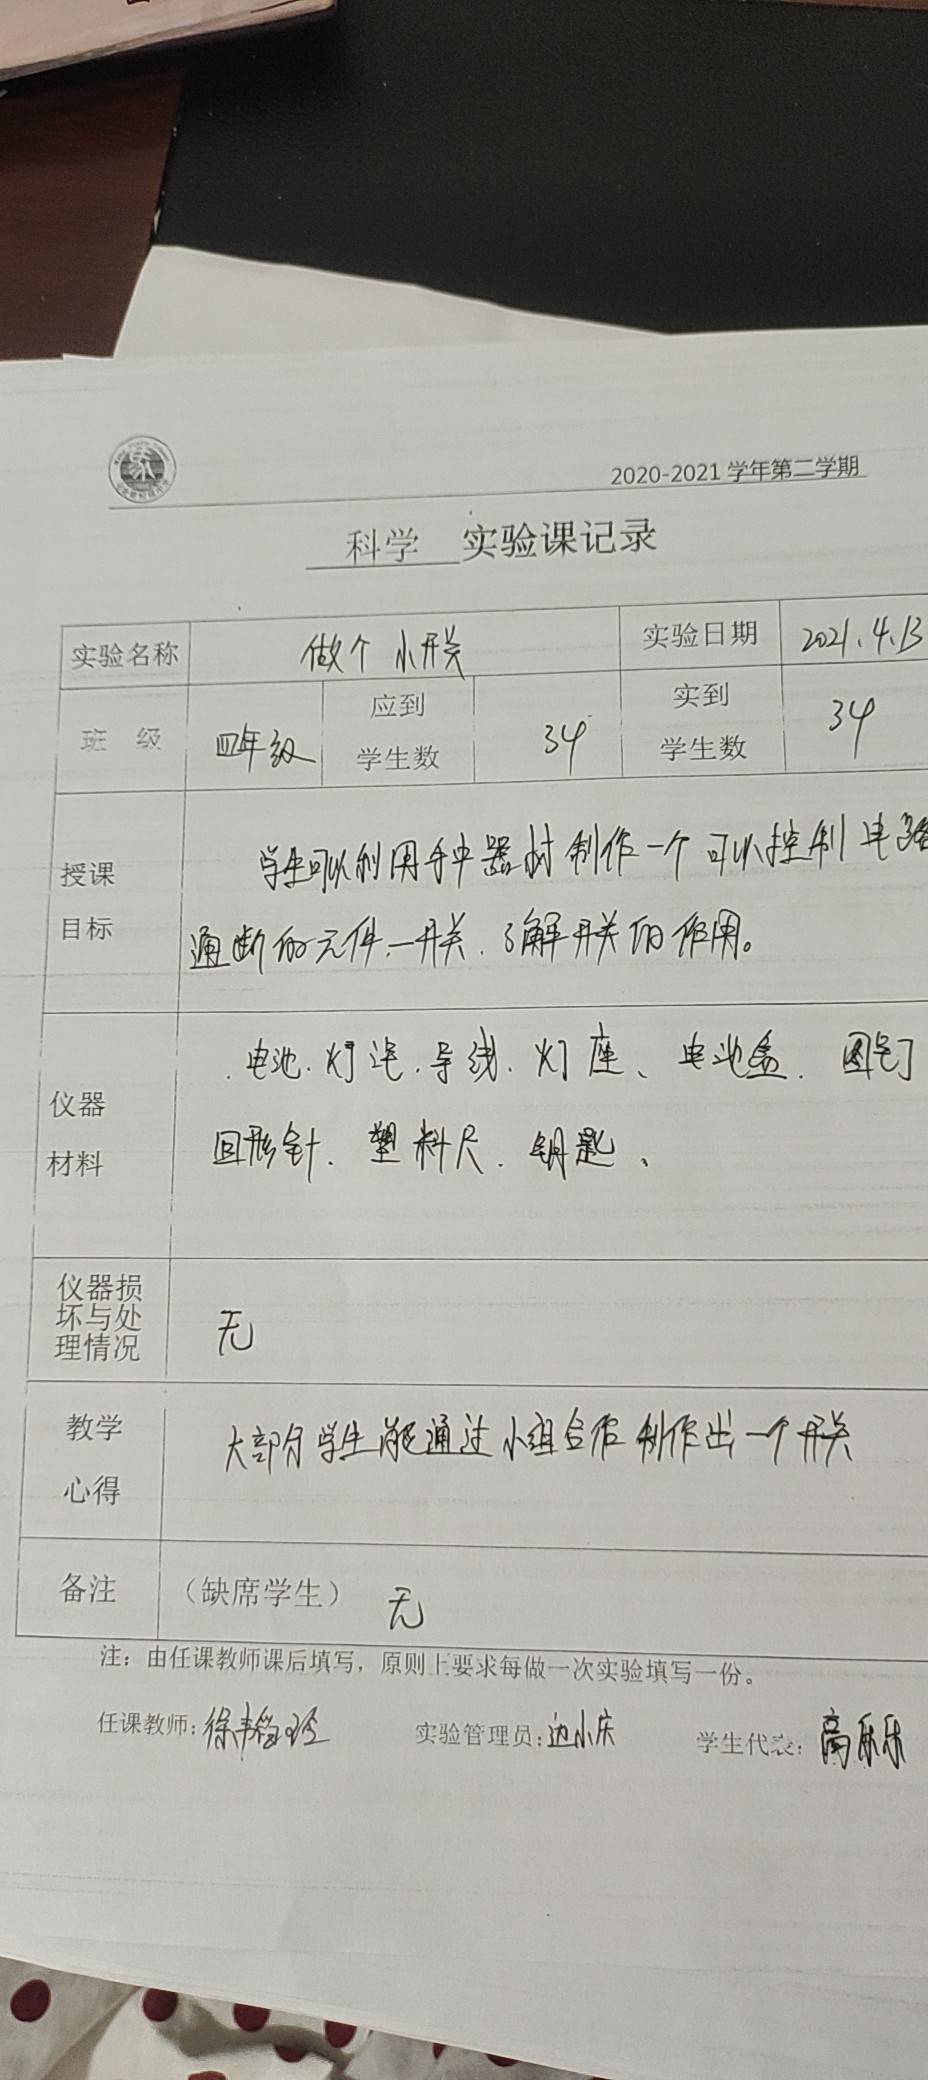 2020-2021 学年第二学期
科学 实验课记录
实验名称 做个小开关 实验日期 2021.4.13
班 级 四年级 应到学生数 34 实到学生数 34
授课目标
学生可以利用手中器材制作一个可以控制电路
通断的元件—开关.了解开关的作用。
仪器材料
电池.灯泡.导线.灯座、电池盒.图钉
回形针.塑料尺.钥匙、
仪器损坏与处理情况 无
教学心得 大部分学生能通过小组合作制作出一个开关
备注 （缺席学生） 无
注：由任课教师课后填写，原则上要求每做一次实验填写一份。
任课教师: 实验管理员:边小庆 学生代表: 高乐乐